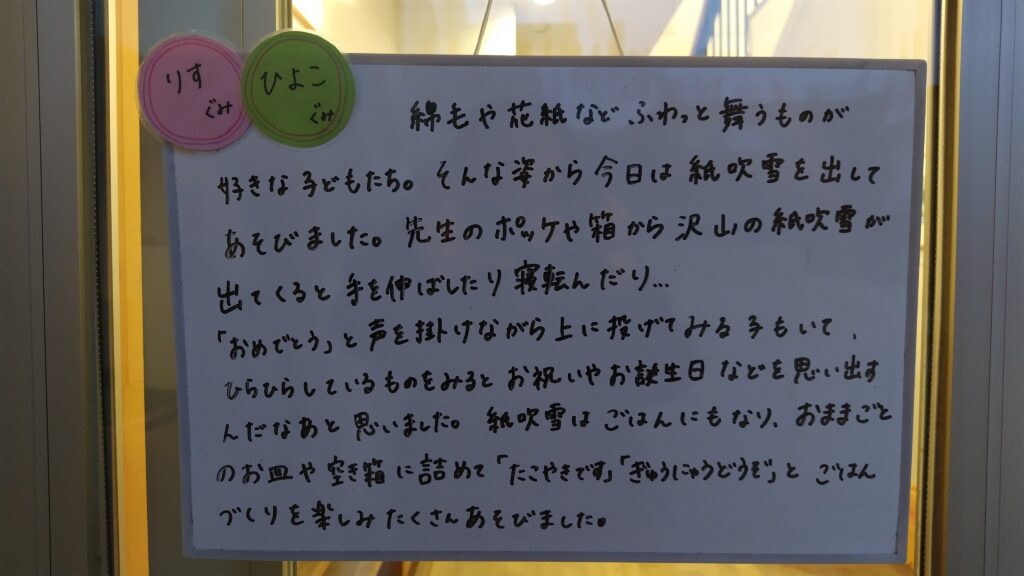 りす
ぐみ
ひよこ
ぐみ
綿毛や花紙など ふわっと舞うものが
好きな子どもたち。そんな姿から今日は紙吹雪を出して
あそびました。先生のポッケや箱から沢山の紙吹雪が
出てくると手を伸ばしたり寝転んだり...
「おめでとう」と声を掛けながら上に投げてみる子もいて、
ひらひらしているものをみるとお祝いやお誕生日などを思い出す
んだなあと思いました。紙吹雪はごはんにもなり、おままごと
のお皿や空き箱に詰めて「たこやきです」「ぎゅうにゅうどうぞ」とごはん
づくりを楽しみたくさんあそびました。